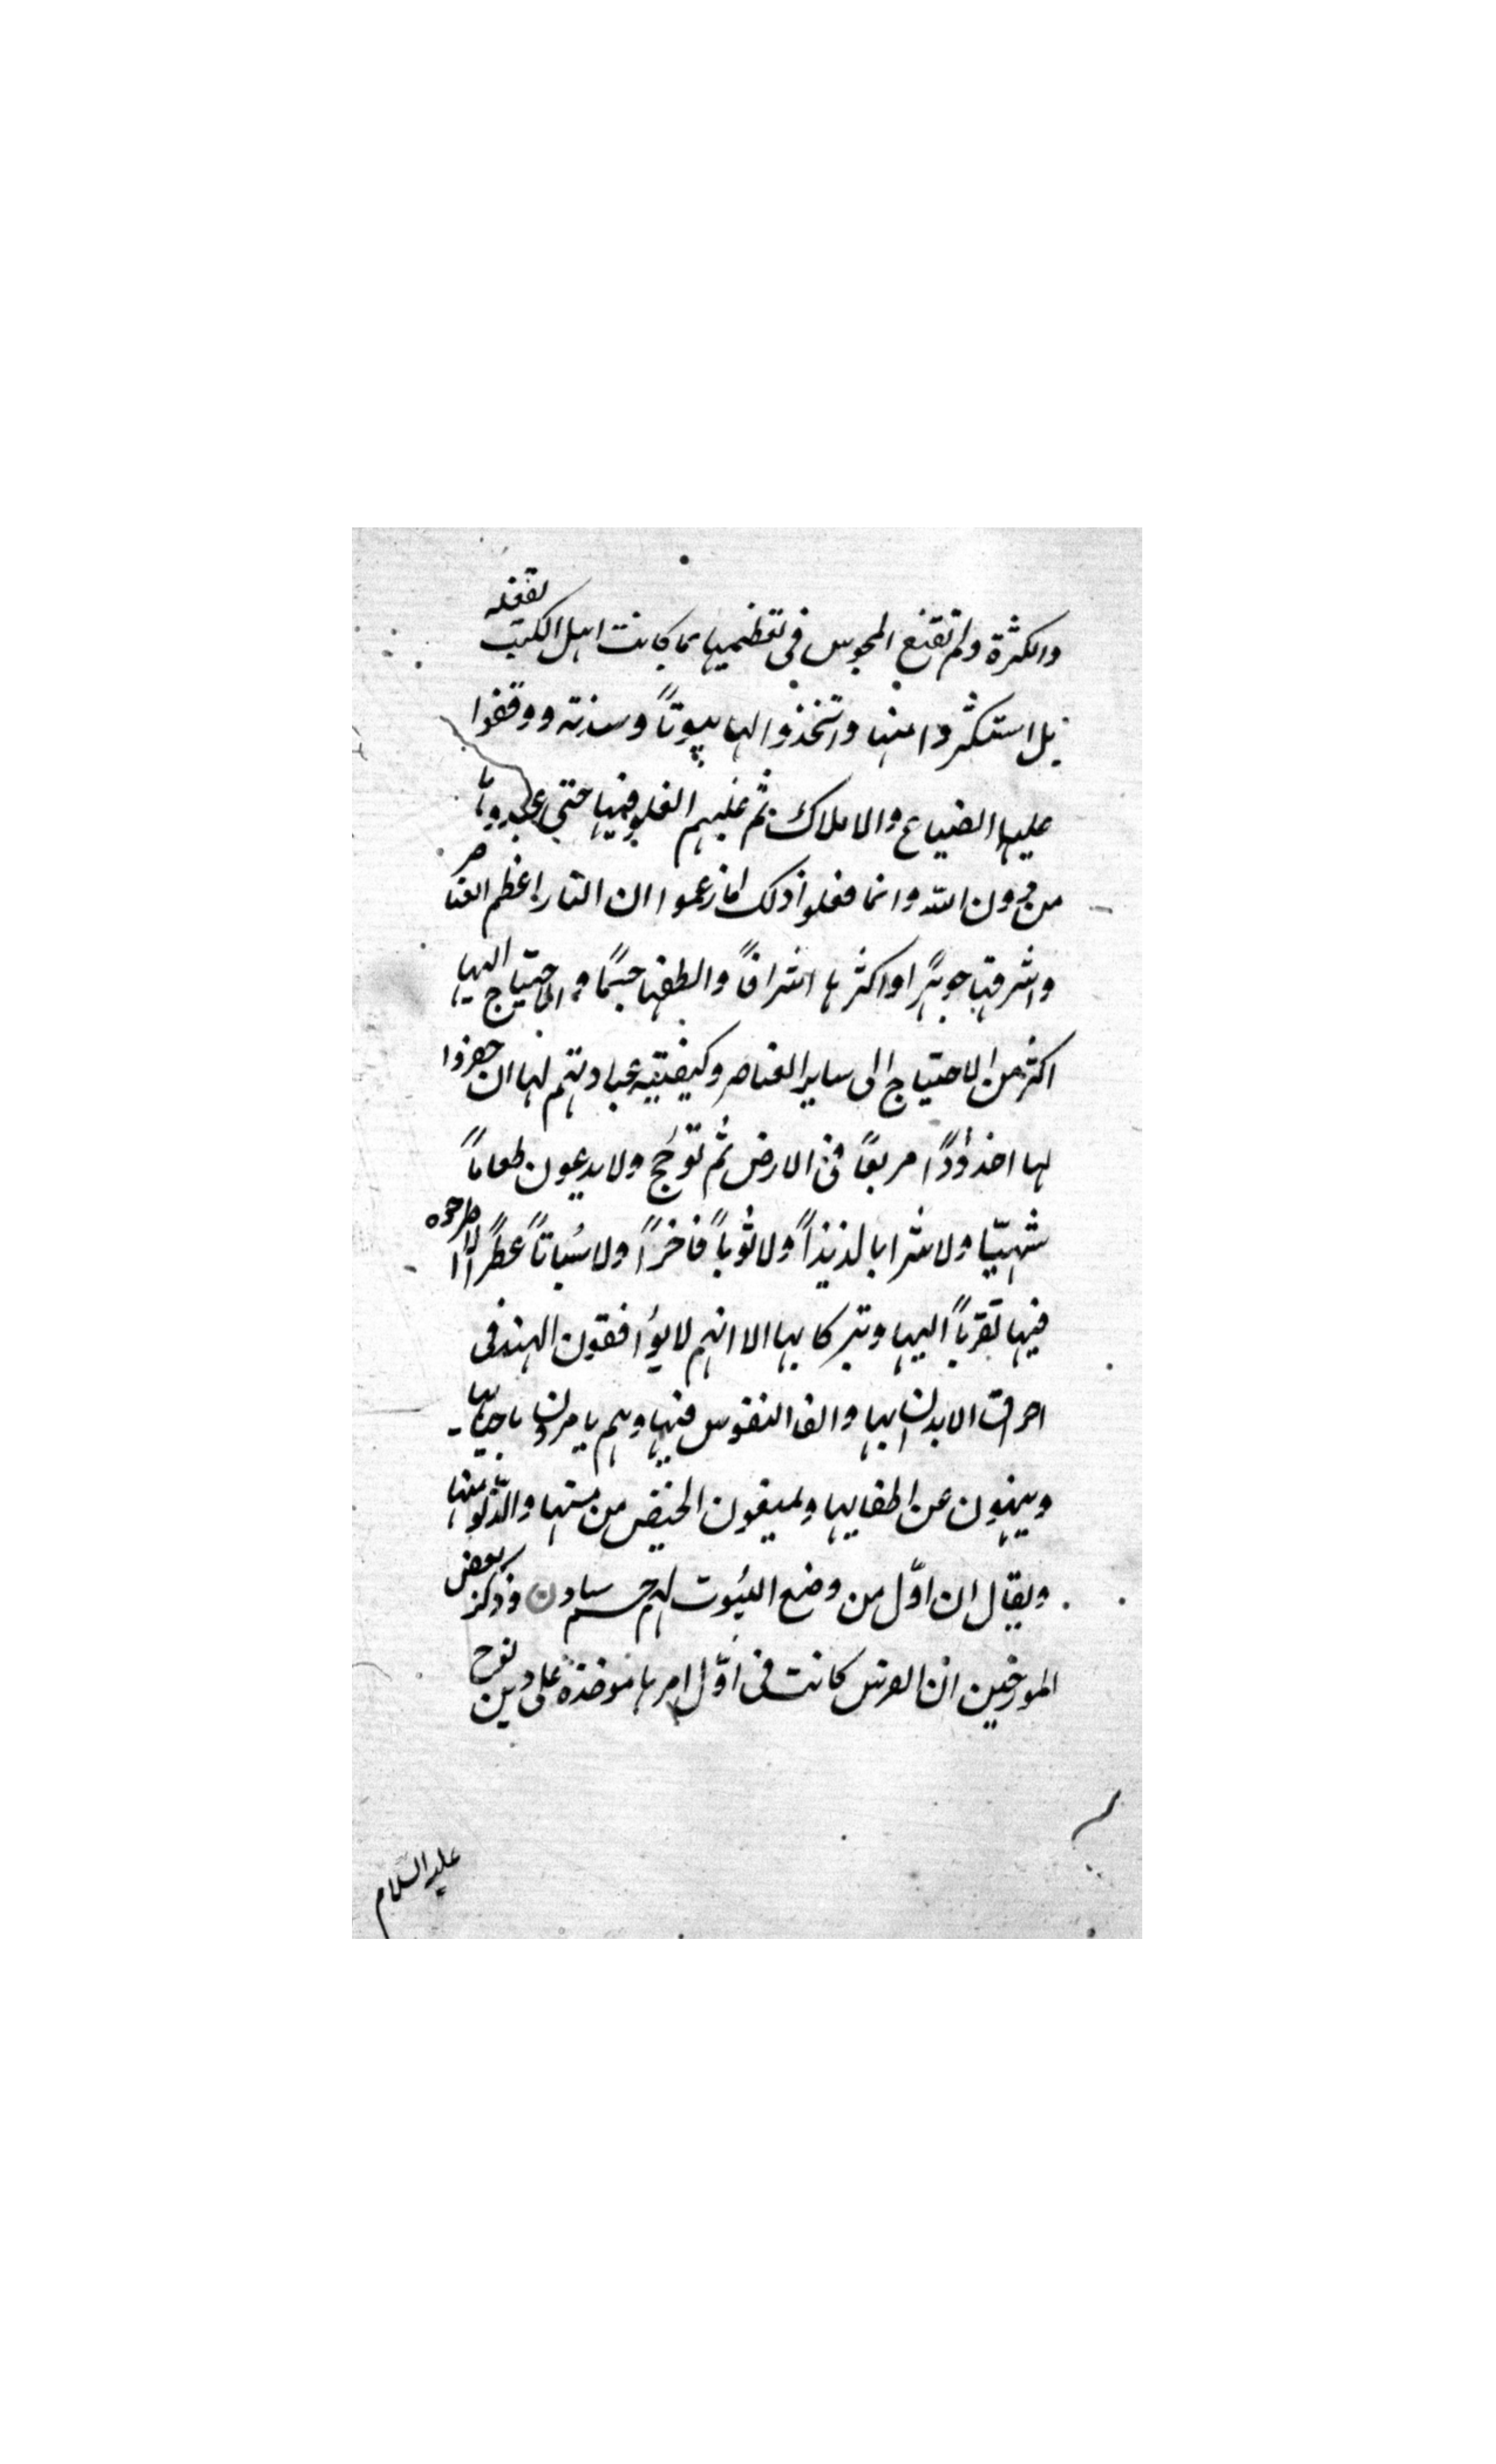 والكثرة ولم تقنع المجوس فى تعظيمها بما كانت اهل الكتب تفعله
بل استكثروا منها واتخذوا لها بيوتاً وسدنته ووقفوا
عليها الضياع والاملاك ثم غلبهم الغلو فيها حتى عبدوها
من دون الله وانما فعلوا ذلك لما زعموا ان النار اعظم العناصر
واشرفها جوهرًا واكثرها اشراقاً والطفها جسمًا والاحتياج اليها
اكثر من الاحتياج الى ساير العناصر وكيفيته عبادتهم لها ان حفروا
لها اخدوُدًا مربعًا فى الارض ثُم توُجج ولا يدعون طعاماً
شهيّا ولا شرابا لذيذاً ولا ثوُباً فاخراً ولا نباتاً عطراً الا طرحوه
فيها تقرّباً اليها وتبركا بها الا انهم لا يوُافقون الهند فى
احراق الابدان بها والف النفوس فيها وهم يامرون باحيائها
وينهون عن اطفايها ويمنعون الحيض من مسّها والدّنو منها
ويقال ان اوّل من وضع البيُوت لهم وذكر بعض
المورخين ان الفرس كانت فى اوّل امرها موحّدةً على دين نوح
عليه السلام